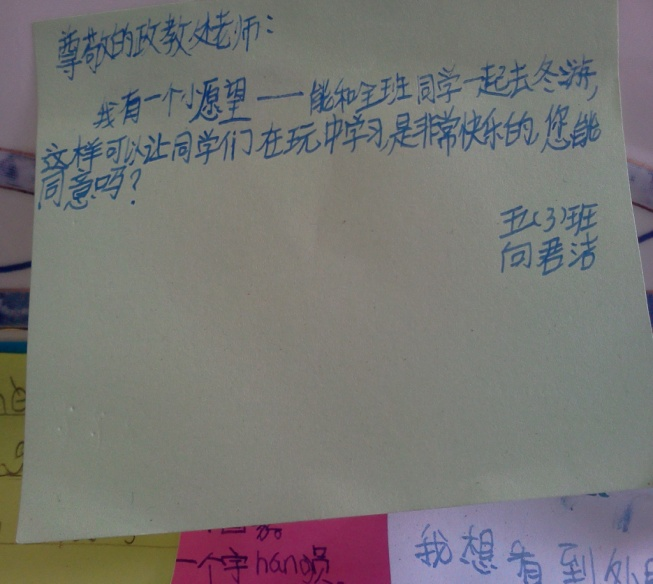 尊敬的政教处老师：
我有一个小愿望——能和全班同学一起去冬游,
这样可以让同学们在玩中学习,是非常快乐的,您能
同意吗?
五(3)班
向君洁
一个字hang
我想看到外